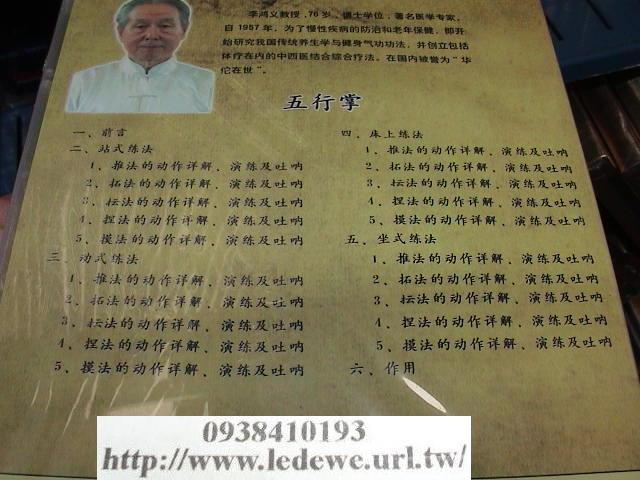 李鸿义教授，76岁，博士学位，著名医学专家，
自1957年，为了慢性疾病的防治和老年保健，即开
始研究我国传统养生学与健身气功功法，并创立包括
体疗在内的中西医结合综合疗法。在国内被誉为“华
佗在世”。
五行掌
一、前言
二、站式练法
1、推法的动作详解、演练及吐呐
2、拓法的动作详解、演练及吐呐
3、抎法的动作详解、演练及吐呐
4、捏法的动作详解、演练及吐呐
5、摸法的动作详解、演练及吐呐
三、动式练法
1、推法的动作详解、演练及吐呐
2、拓法的动作详解、演练及吐呐
3、抎法的动作详解、演练及吐呐
4、捏法的动作详解、演练及吐呐
5、摸法的动作详解、演练及吐呐
四、床上练法
1、推法的动作详解、演练及吐呐
2、拓法的动作详解、演练及吐呐
3、抎法的动作详解、演练及吐呐
4、捏法的动作详解、演练及吐呐
5、摸法的动作详解、演练及吐呐
五、坐式练法
1、推法的动作详解、演练及吐呐
2、拓法的动作详解、演练及吐呐
3、抎法的动作详解、演练及吐呐
4、捏法的动作详解、演练及吐呐
5、摸法的动作详解、演练及吐呐
六、作用
0938410193
http://www.ledewe.url.tw/